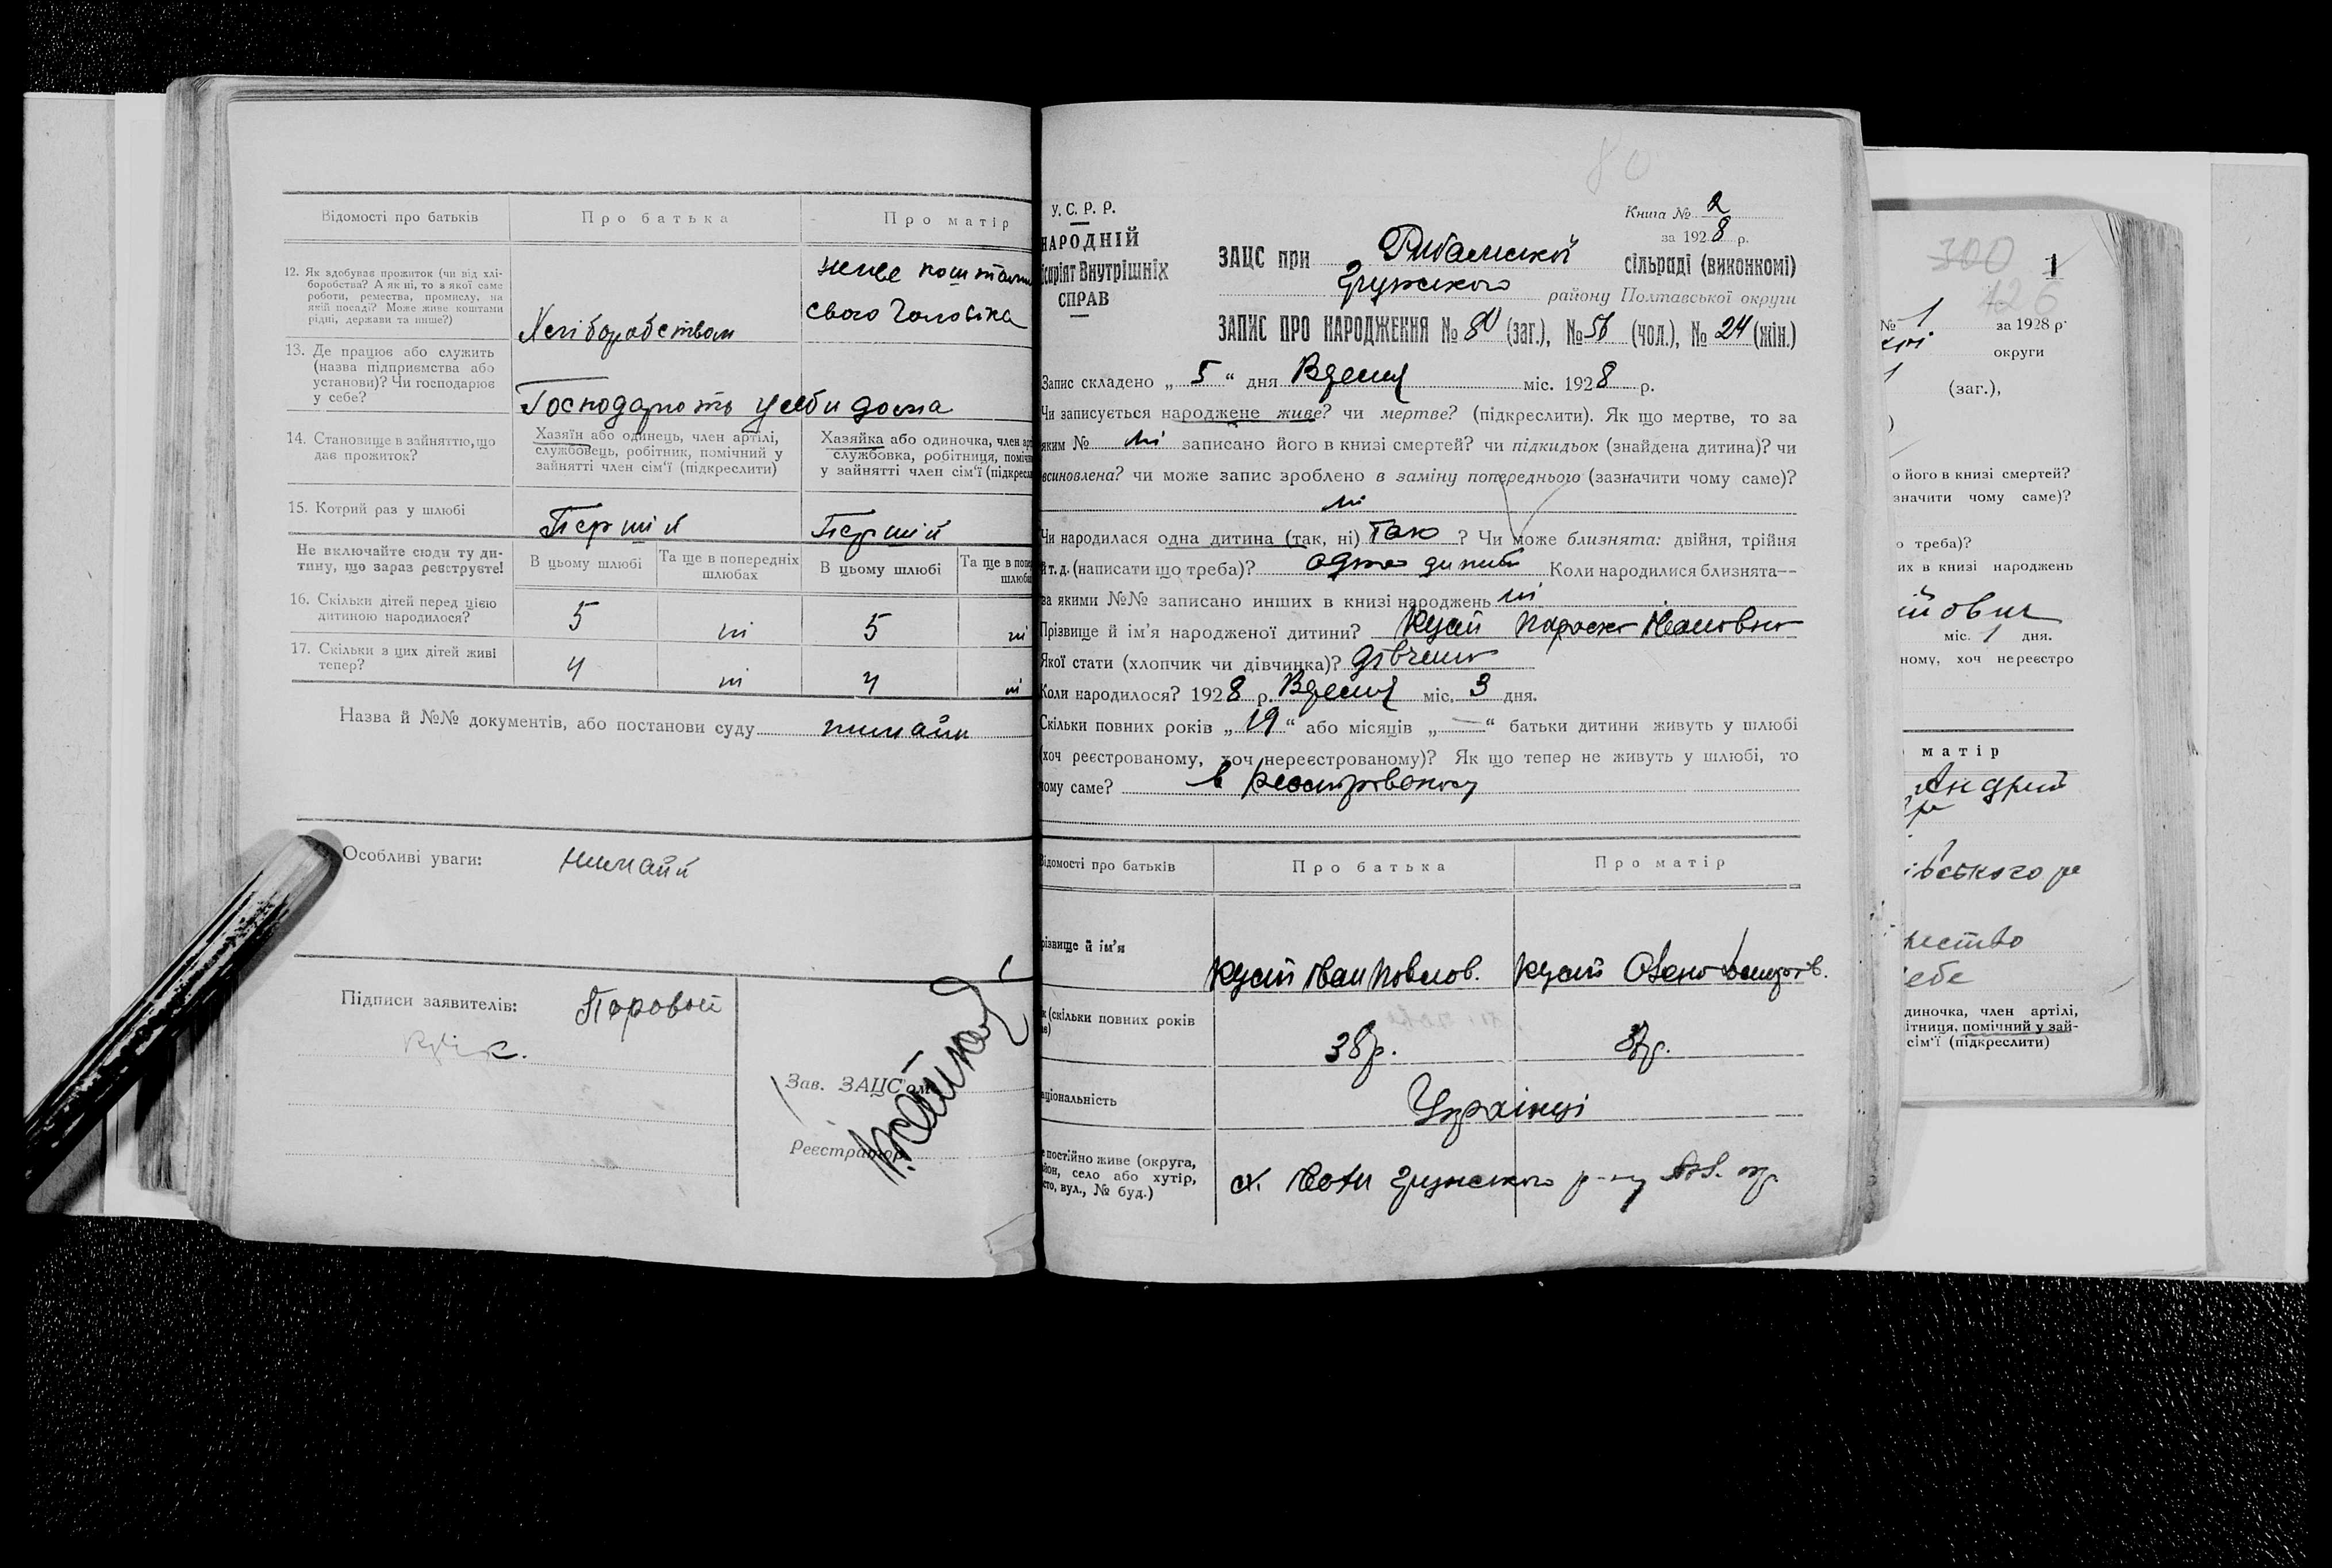 Відомості про батьків
Про батька
Про матір
12. Як здобуває прожиток (чи від хлі-
боробства? А як ні, то з якої саме
роботи, ремества, промислу, на
якій посаді? Може живе коштами
рідні, держави та инше?)
Хліборобством
живе
свого чоловіка
13. Де працює або служить
(назва підприємства або
установи)? Чи господарює
у себе?
Господарюють у себи дома
14. Становище в зайняттю, що
дає прожиток?
Хазяїн або одинець, член артілі,
службовець, робітник, помічний у
зайнятті член сім'ї (підкреслити)
Хазяйка або одиночка, член арт
службовка, робітниця, помічн
у зайнятті член сім'ї (підкресл
15. Котрий раз у шлюбі
Першій
Першій
Не включайте сюди ту ди-
тину, що зараз реєструєте!
В цьому шлюбі
Та ще в попередніх
шлюбах
В цьому шлюбі
Та ще в попе
шлюба
16. Скільки дітей перед цією
дитиною народилося?
5
ні
5
ні
17. Скільки з цих дітей живі
тепер?
4
ні
4
ні
Назва й №№ документів, або постанови суду
Особливі уваги:
Підписи заявителів:
Зав. ЗАЦС'ом
Реєстратор
80
У. С. Р. Р.
НАРОДНІЙ
ісаріят Внутрішніх
СПРАВ
Книга № 2
за 1928 р.
ЗАЦС при
сільраді (виконкомі)
району Полтавської округи
ЗАПИС ПРО НАРОДЖЕННЯ № 80 (заг.), № 56 (чол.), № 24 (жін.)
Запис складено „ 5 “ дня Вдесня міс. 1928 р.
Чи записується народжене живе? чи мертве? (підкреслити). Як що мертве, то за
яким № ні записано його в книзі смертей? чи підкидьок (знайдена дитина)? чи
всиновлена? чи може запис зроблено в заміну попереднього (зазначити чому саме)?
ні
Чи народилася одна дитина (так, ні) Так ? Чи може близнята: двійня, трійня
й т. д. (написати що треба)? одна Коли народилися близнята—
за якими №№ записано инших в книзі народжень ні
Прізвище й ім'я народженої дитини? Параска Івановна
Якої стати (хлопчик чи дівчинка)? дівчина
Коли народилося? 1928 р. Вдесня міс. 3 дня.
Скільки повних років „ 19 “ або місяців „ — “ батьки дитини живуть у шлюбі
(хоч реєстрованому, хоч нереєстрованому)? Як що тепер не живуть у шлюбі, то
чому саме? в
Відомості про батьків
Про батька
Про матір
різвище й ім'я
Іван Павлов.
к (скільки повних років
ає)
38 р.
аціональність
Українці
е постійно живе (округа,
йон, село або хутір,
сто, вул., № буд.)
300
1
126
№ 1
за 1928 р.
округи
(заг.),
о його в книзі смертей?
значити чому саме)?
о треба)?
их в книзі народжень
міс. 1 дня.
ному, хоч нереєстро
матір
ебе
диночка, член артілі,
ітниця, помічний у зай-
сім'ї (підкреслити)